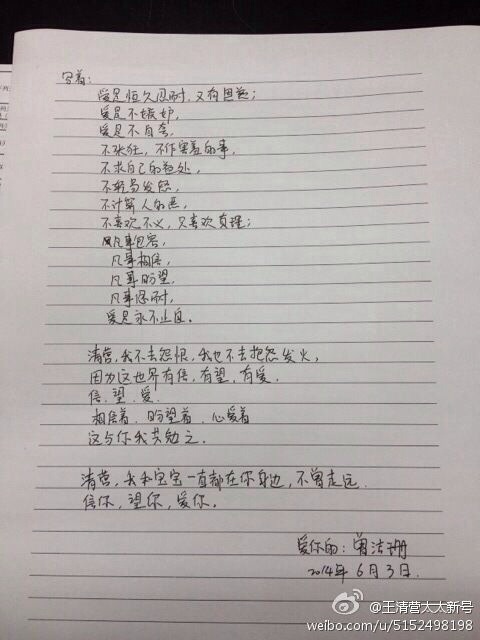 写着：
爱是恒久忍耐，又有恩慈；
爱是不嫉妒，
爱是不自夸，
不张狂，不作害羞的事，
不求自己的益处，
不轻易发怒，
不计算人的恶，
不喜欢不义，只喜欢真理；
凡事包容，
凡事相信，
凡事盼望，
凡事忍耐，
爱是永不止息。
清营，我不去怨恨，我也不去抱怨发火，
因为这世界有信，有望，有爱。
信．望．爱．
相信着．盼望着．心爱着
这与你我共勉之．
清营，我和宝宝一直都在你身边，不曾走远．
信你，望你，爱你。
爱你的：曾洁珊
2014年6月3日．
@王清营太太新号
weibo.com/u/5152498198